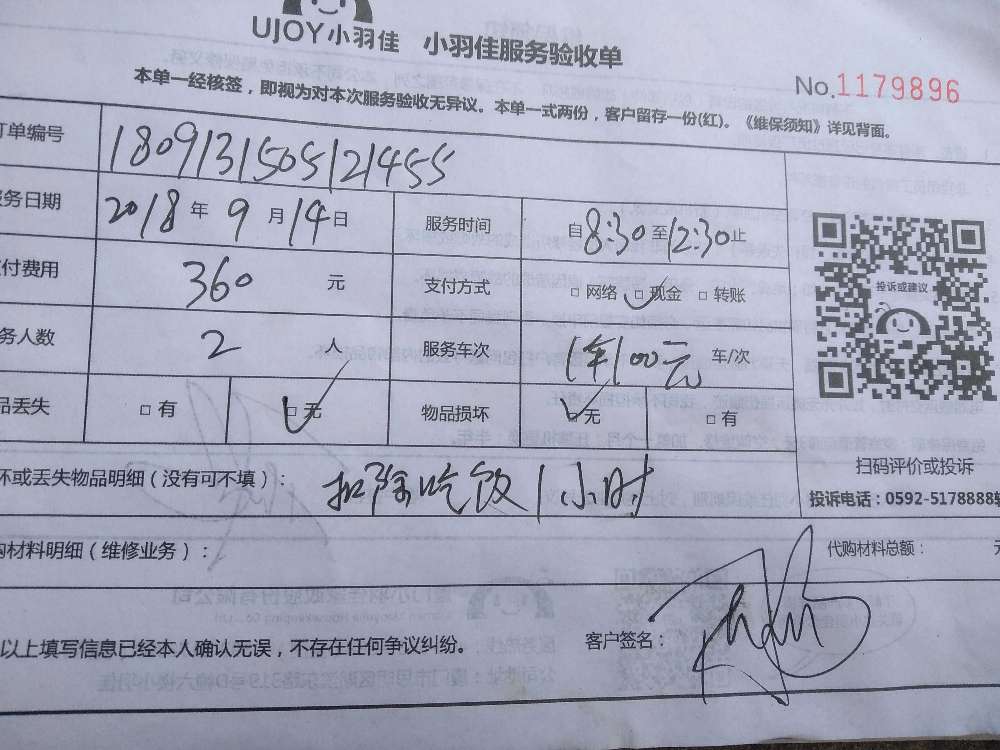 UJOY小羽佳 小羽佳服务验收单
No.1179896
本单一经核签，即视为对本次服务验收无异议。本单一式两份，客户留存一份(红)。《维保须知》详见背面。
订单编号 1809131505121455
服务日期 2018年9月14日 服务时间 自8:30至12:30止
支付费用 360元 支付方式 □网络 □现金 □转账
务人数 2人 服务车次 1年100元 车/次
品丢失 □有 □无 物品损坏 □无 □有
投诉或建议
坏或丢失物品明细（没有可不填）： 扣除吃饭1小时
扫码评价或投诉
投诉电话：0592-5178888转
购材料明细（维修业务）： 代购材料总额： 元
以上填写信息已经本人确认无误，不存在任何争议纠纷。 客户签名：